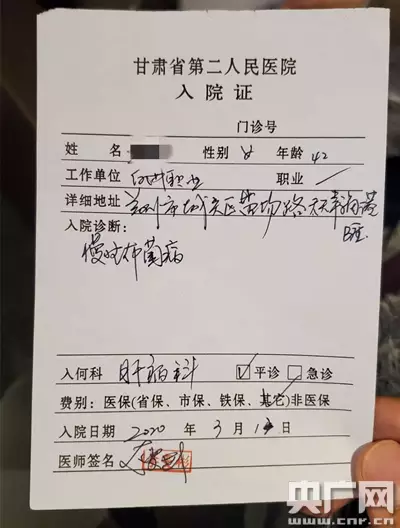 甘肃省第二人民医院
入院证
门诊号
姓名 性别 女 年龄 42
工作单位 职业
详细地址 兰州市城关区
入院诊断:
慢 布菌病
入何科 肝病科 ☑平诊 □急诊
费别:医保(省保、市保、铁保、其它)非医保
入院日期 2020 年 3 月 日
医师签名
央广网
www.cnr.cn